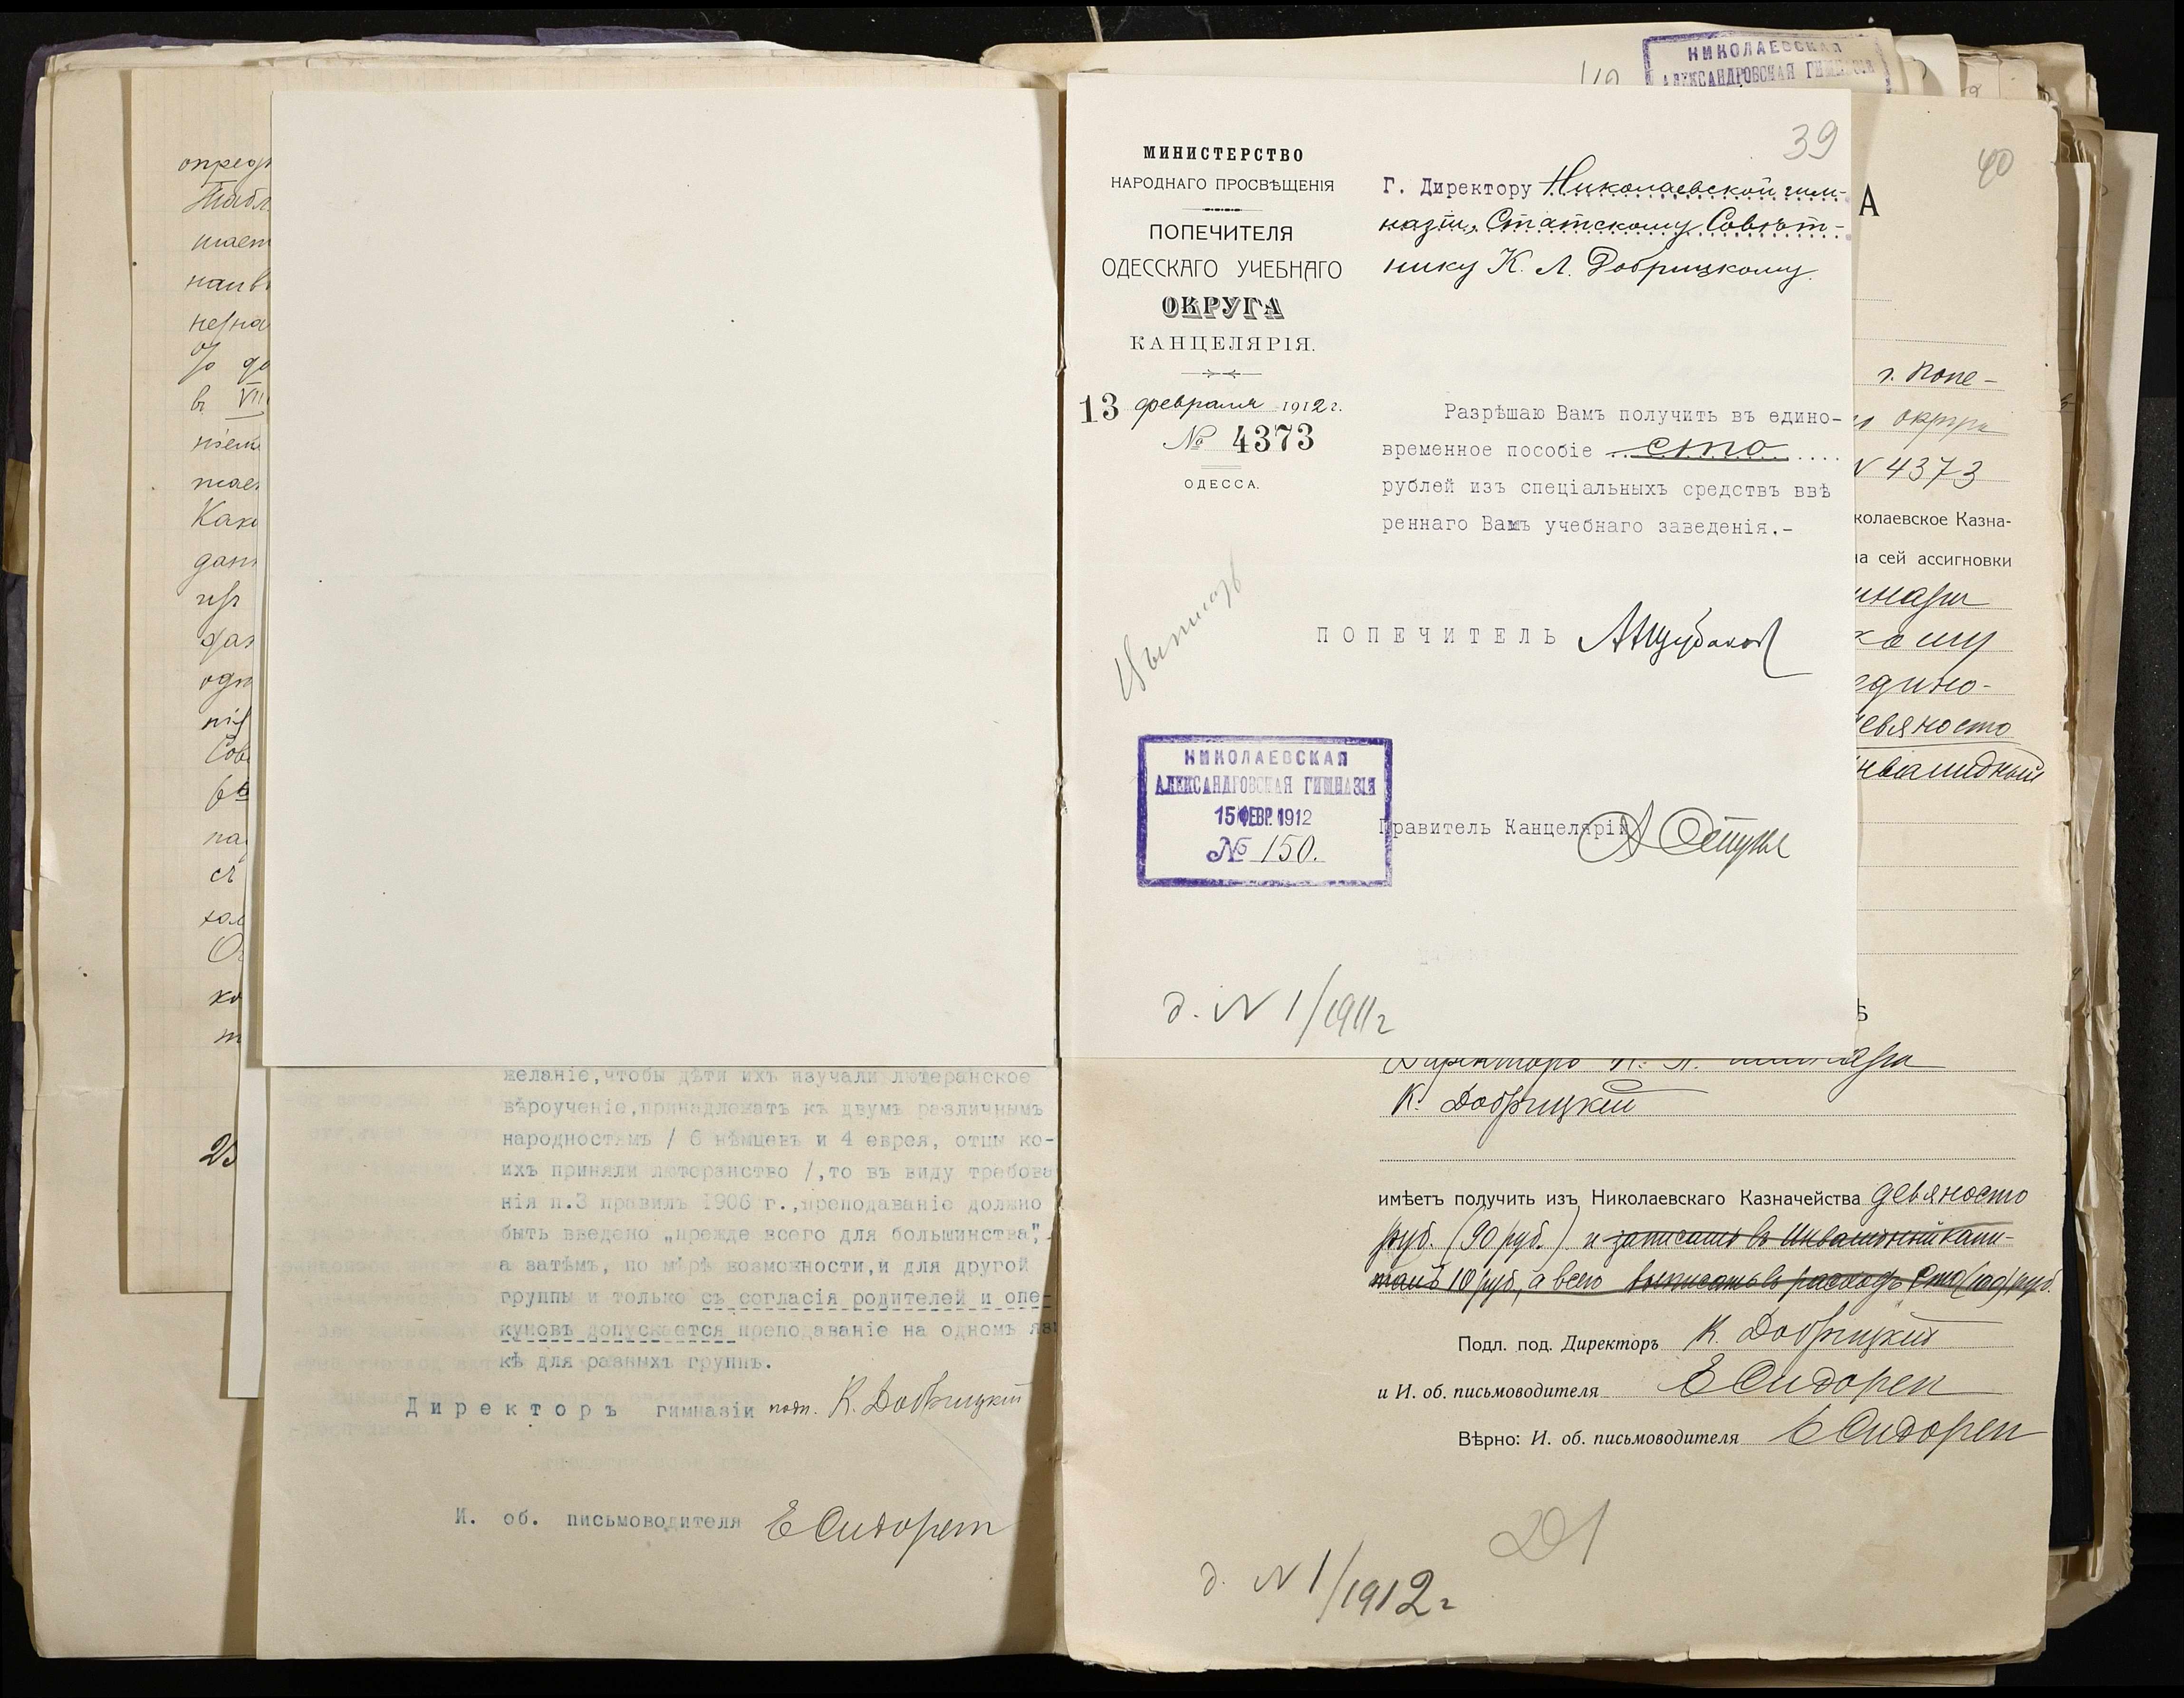 опредѣ
Табл
наив
в VII
Како
дан
Сов
па
съ
хал
ко
т
25
желаніе,чтобы дѣти ихъ изучали лютеранское
вѣроученіе,принадлежатъ къ двумъ различнымъ
народностямъ / 6 нѣмцевъ и 4 еврея, отцы ко-
ихъ приняли лютеранство /,то въ виду требова
нія п.3 правилъ 1906 г.,преподаваніе должно
быть введено „прежде всего для большинства",
а затѣмъ, по мѣрѣ возможности,и для другой
группы и только съ согласія родителей и опе-
куновъ допускается преподаваніе на одномъ яз
кѣ для разныхъ группъ.
Директоръ гимназіи подп. К. Добрицкій
И. об. письмоводителя Е Сидорен
НИКОЛАЕВСКАЯ
АЛЕКСАНДРОВСКАЯ ГИМНАЗІЯ
39
МИНИСТЕРСТВО
НАРОДНАГО ПРОСВѢЩЕНІЯ
ПОПЕЧИТЕЛЯ
ОДЕССКАГО УЧЕБНАГО
ОКРУГА
КАНЦЕЛЯРІЯ.
13 февраля 1912 г.
№ 4373
ОДЕССА.
Г. Директору Николаевской гим-
назіи, Статскому Совѣт-
нику К. Л. Добрицкому.
Разрѣшаю Вамъ получить въ едино-
временное пособіе сто
рублей изъ спеціальныхъ средствъ ввѣ
реннаго Вамъ учебнаго заведенія.-
ПОПЕЧИТЕЛЬ АЩербаков
НИКОЛАЕВСКАЯ
АЛЕКСАНДРОВСКАЯ ГИМНАЗІЯ
15 ФЕВР. 1912
№ 150.
Правитель Канцеляріи
д. N 1/1911 г
40
А
г. Попе-
округа
N 4373
колаевское Казна-
на сей ассигновки
иназіи
кому
едино-
девяносто
нвалидный
Ѣ
Директоръ Н. А. гимназіи
К. Добрицкій
имѣетъ получить изъ Николаевскаго Казначейства девяносто
руб. (90 руб.) и записать въ Инвалидный капи-
талъ 10 руб., а всего выписать въ расходъ Сто (100) руб.
Подл. под. Директоръ К. Добрицкій
и И. об. письмоводителя Е Сидорен
Вѣрно: И. об. письмоводителя Е Сидорен
201
д. N 1/1912 г